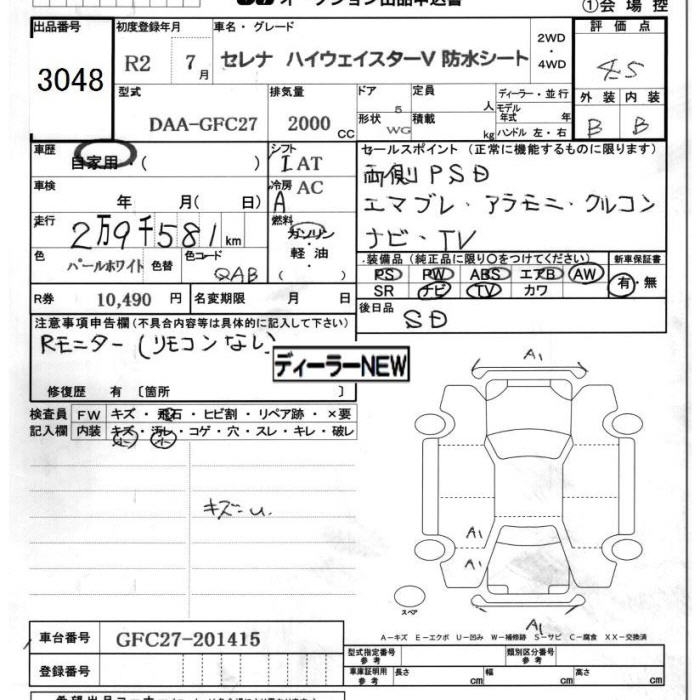 オークション出品申込書
①会場控
出品番号 初度登録年月 車名・グレード 評価点
3048 R2 7月 セレナ ハイウェイスターV 防水シート 2WD・4WD 4.5
型式 排気量 ドア 5 定員 人 ディーラー・並行 外装 内装
DAA-GFC27 2000 CC 形状 WG 積載 kg モデル年式 年 ハンドル 左・右 B B
車歴 自家用・( ) シフト IAT セールスポイント（正常に機能するものに限ります）
車検 年 月( 日) 冷房 A AC 両側PSD
走行 2万9千581km 燃料 ガソリン・軽油・( ) エマブレ・アラモニ・クルコン
ナビ・TV
色 パールホワイト 色替 色コード QAB 装備品（純正品に限り〇をつけてください） 新車保証書
PS PW ABS エアB AW 有・無
SR ナビ TV カワ
R券 10,490円 名変期限 月 日 後日品 SD
注意事項申告欄（不具合内容等は具体的に記入して下さい）
Rモニター（リモコンなし）
ディーラーNEW
修復歴 有〔箇所 〕
検査員記入欄 FW キズ・飛石・ヒビ割・リペア跡・×要
内装 キズ・汚レ・コゲ・穴・スレ・キレ・破レ
小 小
キズ=u.
A1
A1
A1
スペア
A1
A−キズ E−エクボ U−凹み W−補修跡 S−サビ C−腐食 XX−交換済
車台番号 GFC27-201415 型式指定番号 参考 類別区分番号 参考
登録番号 車庫証明用 参考 長さ cm 幅 cm 高さ cm